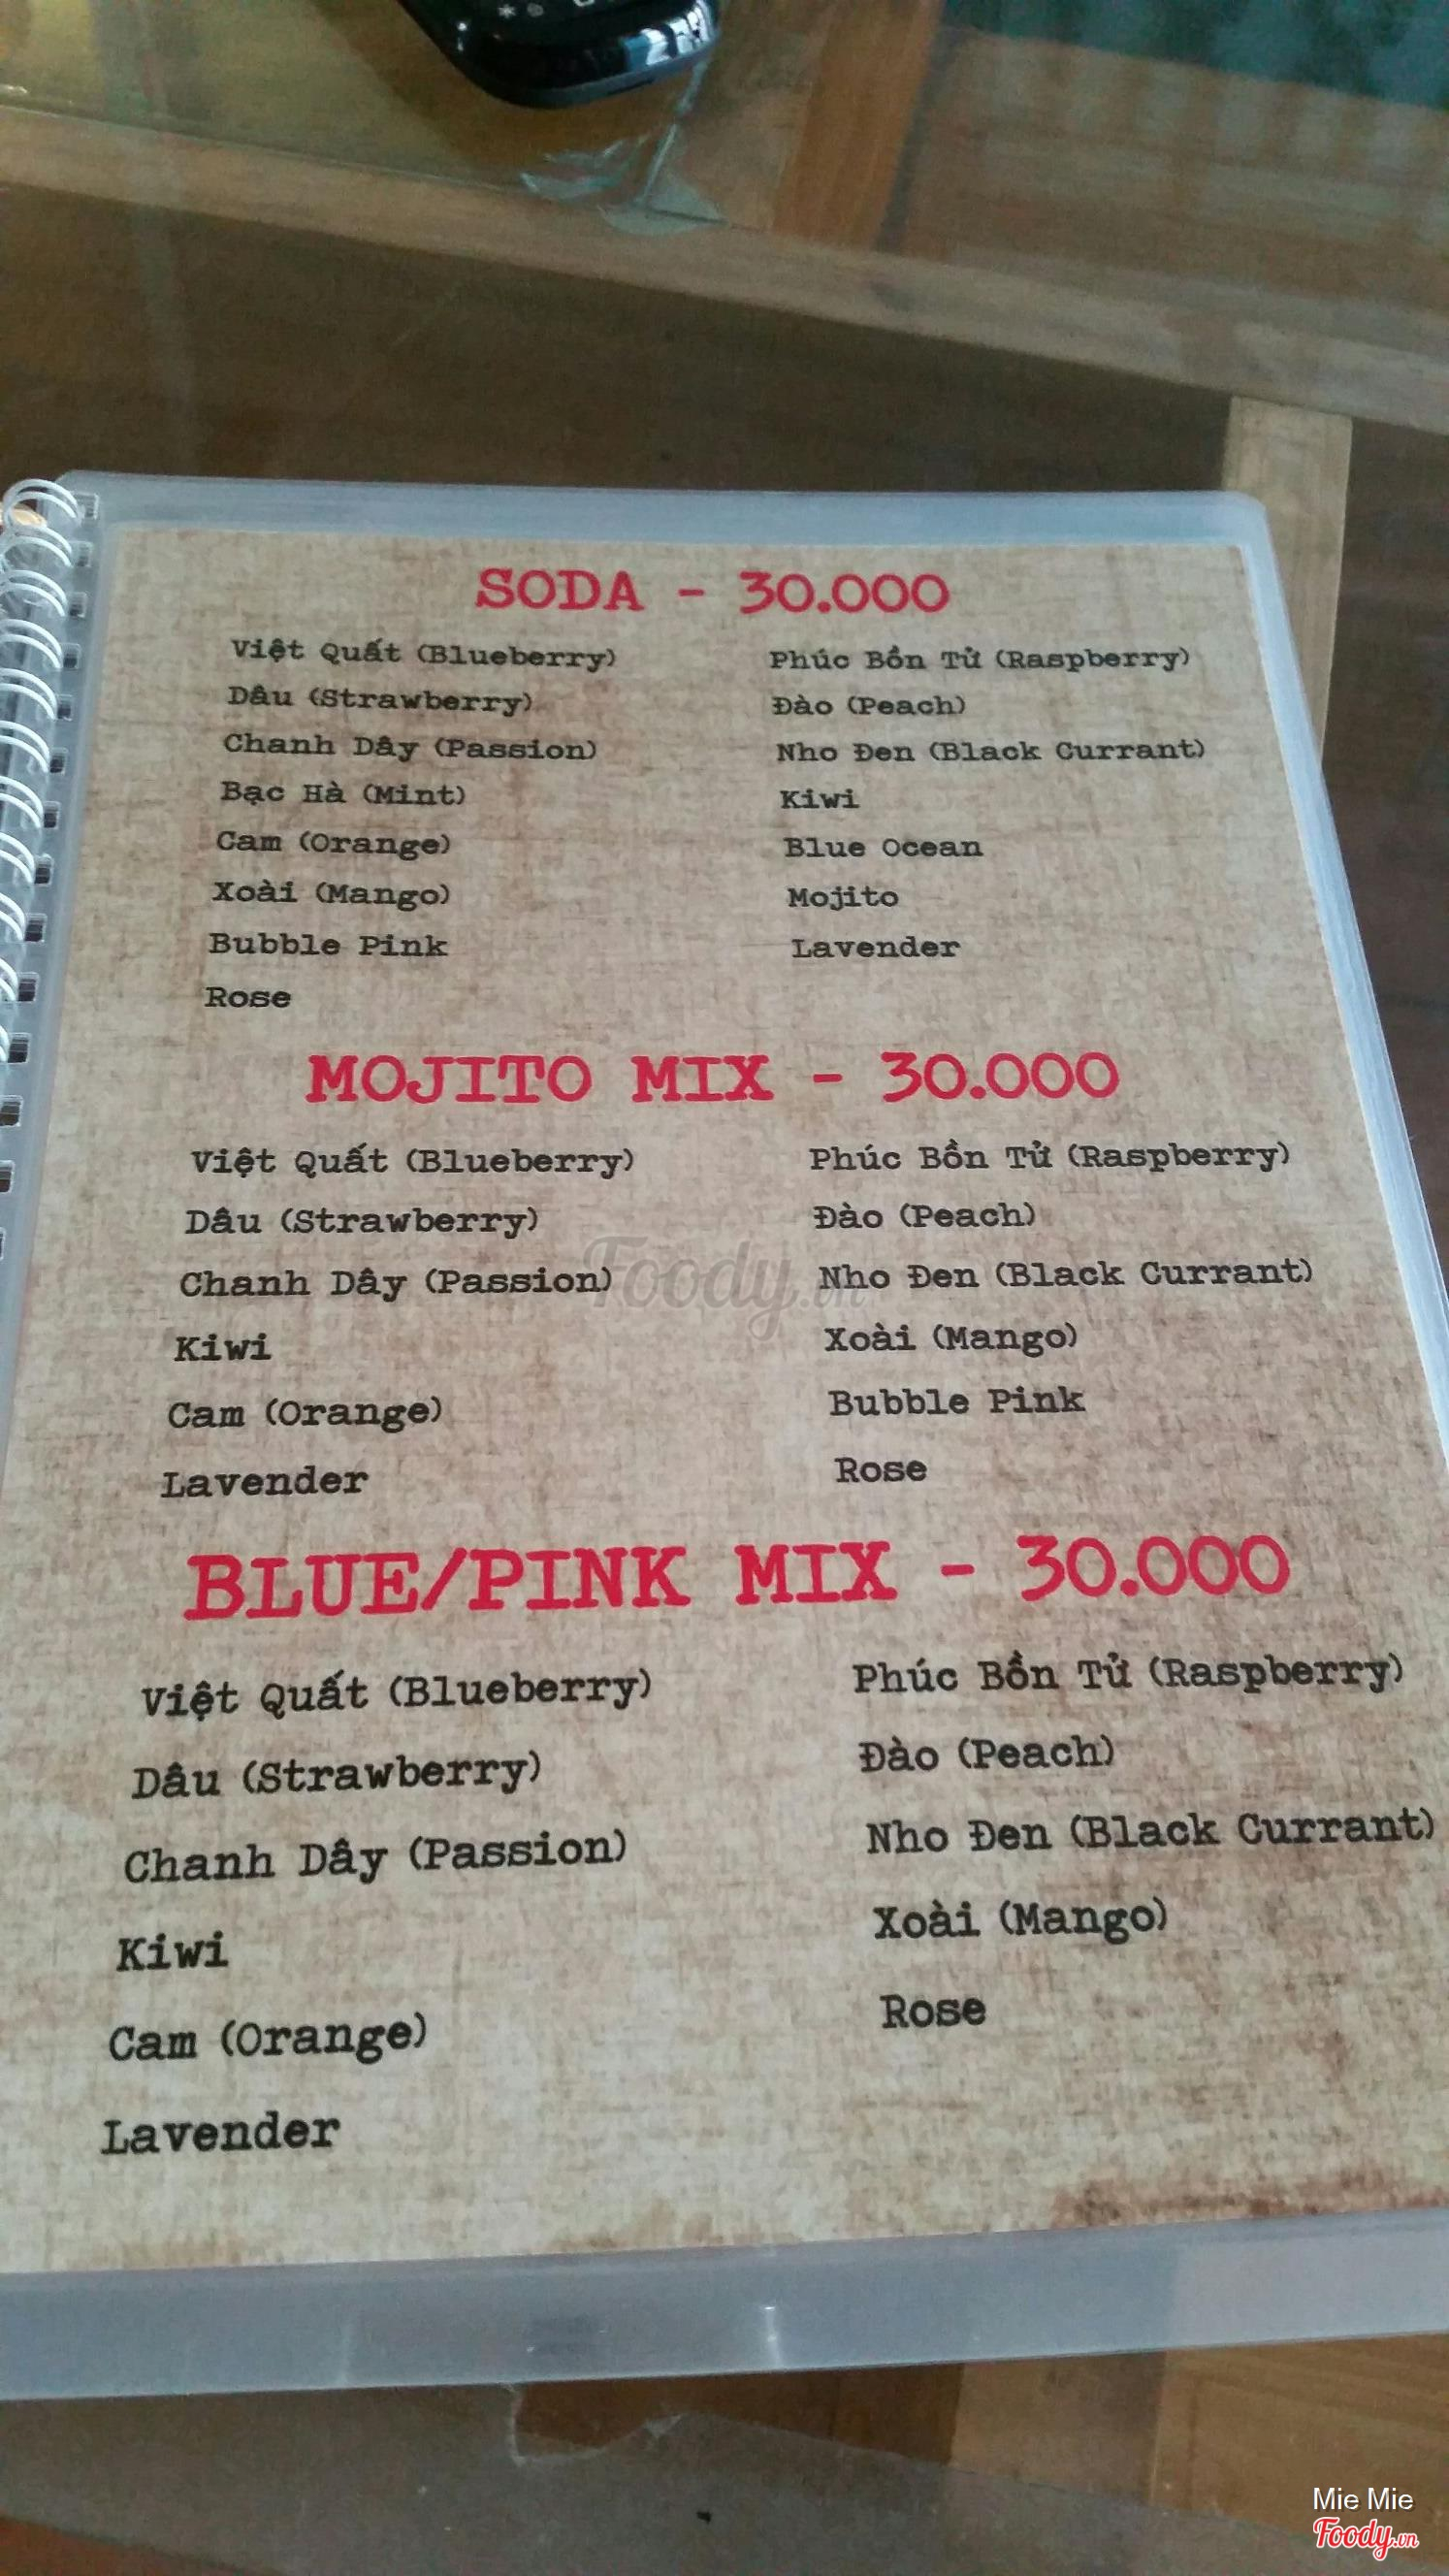 SODA - 30.000
Việt Quất (Blueberry)
Dâu (Strawberry)
Chanh Dây (Passion)
Bạc Hà (Mint)
Cam (Orange)
Xoài (Mango)
Bubble Pink
Rose
Phúc Bồn Tử (Raspberry)
Đào (Peach)
Nho Đen (Black Currant)
Kiwi
Blue Ocean
Mojito
Lavender
MOJITO MIX - 30.000
Việt Quất (Blueberry)
Dâu (Strawberry)
Chanh Dây (Passion)
Kiwi
Cam (Orange)
Lavender
Phúc Bồn Tử (Raspberry)
Đào (Peach)
Nho Đen (Black Currant)
Xoài (Mango)
Bubble Pink
Rose
Foody.vn
BLUE/PINK MIX - 30.000
Việt Quất (Blueberry)
Dâu (Strawberry)
Chanh Dây (Passion)
Kiwi
Cam (Orange)
Lavender
Phúc Bồn Tử (Raspberry)
Đào (Peach)
Nho Đen (Black Currant)
Xoài (Mango)
Rose
Mie Mie
Foody.vn